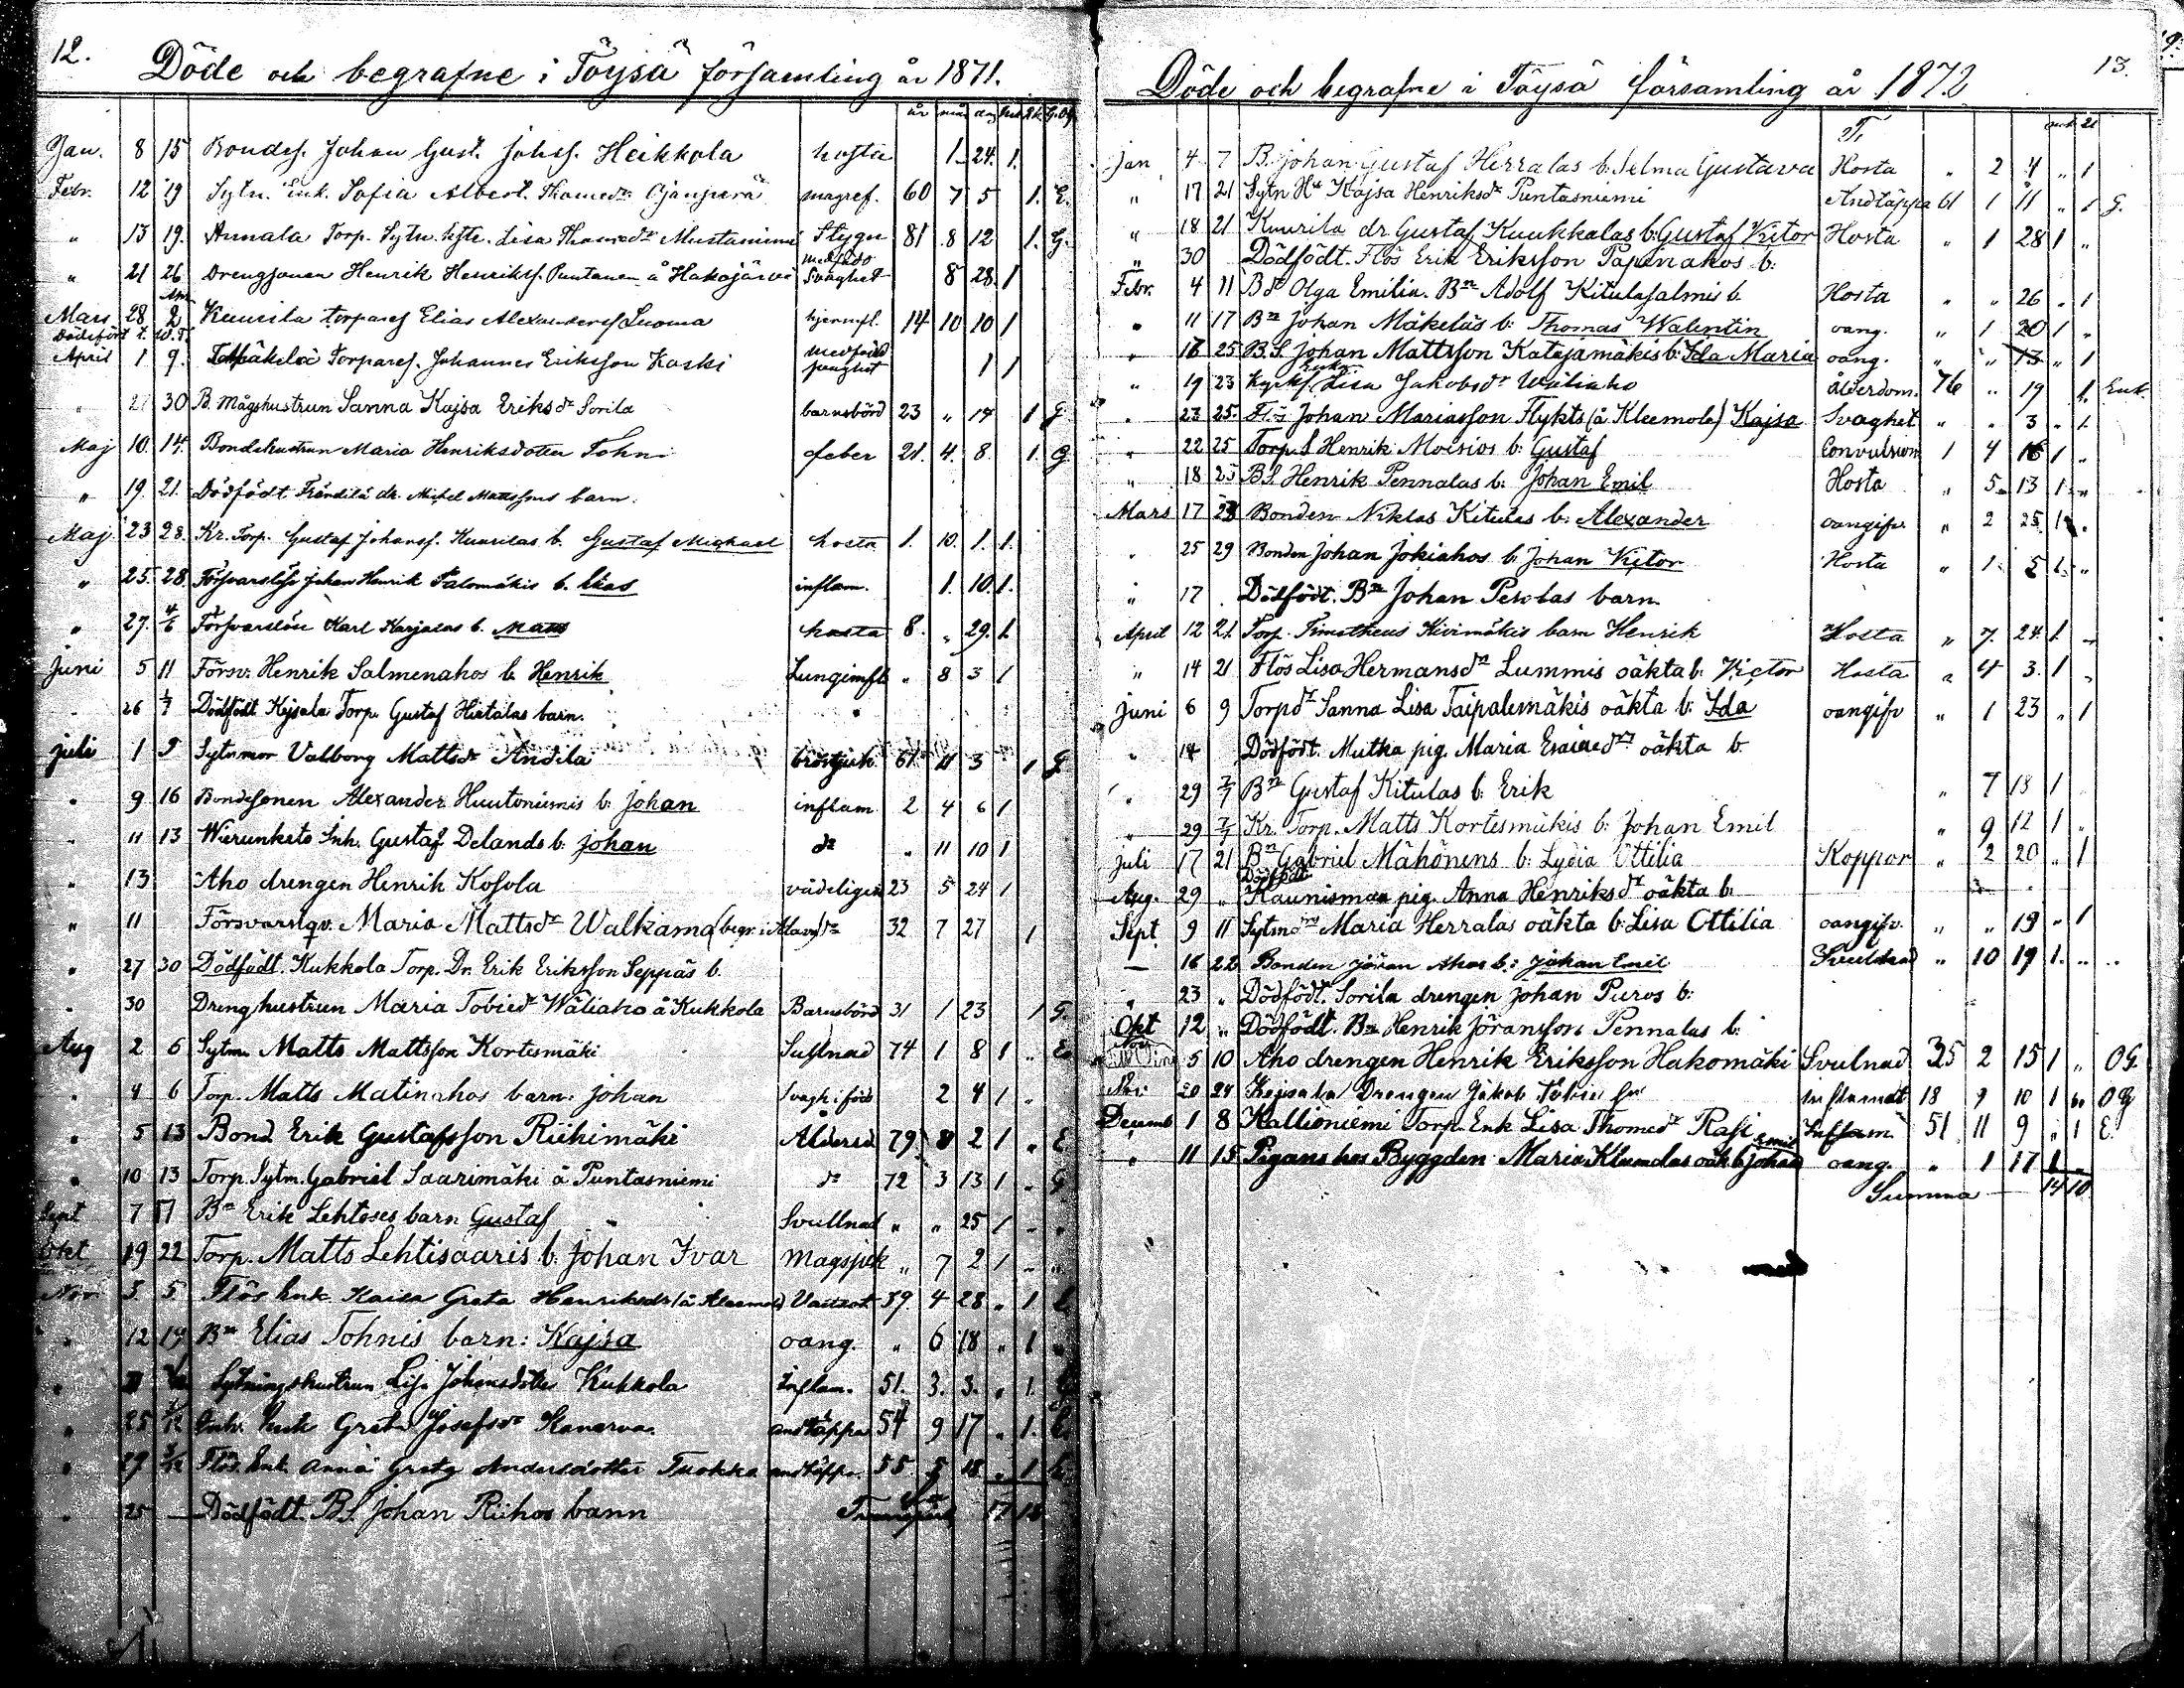 12.
Döde och begrafne i Töysä församling år 1871.
år mån dag
Jan. 8 15 Bondes. Johan Gust. Johss. Heikkola hosta 1 24 1.
Febr. 12 19 Sytn. Enk. Sofia Albert. Thomedr Ojanperä magref. 60 7 5 1. E.
" 13 19. Annala Torp. Sytn. Lisa Thomasdr Mustaniemi Stygn 81 8 12 1. G.
" 21 26 Drengsonen Henrik Henrikss. Puntanen å Hakojärvi medfödd Svaghet 8 28 1
Mars 28 Apr. 2 Kuurila torpares Elias Alexanderss Luoma hjernfl. 14 10 10 1
April 1 9. Torpares. Johannes Eriksson Koski medfödd svaghet 1 1
" 27 30 B. Mågshustrun Sanna Kajsa Eriksdr Sorila barnsbörd 23 " 14 1 G
Maj 10. 14. Bondehustrun Maria Henriksdotter Tohni feber 21. 4. 8. 1. G.
" 19. 21. Dödfödt dr. Michel Mattssons barn.
Maj 23 28. Kr. Torp. Gustaf Johanss. Kuurilas b. Gustaf Michael hosta 1. 10. 1. 1.
" 25. 28. Johan Henrik Palomäkis b. inflam. 1. 10. 1.
" 27. 4/6 Försvarslöse Karl Karjalas b. Matts hosta 8. " 29. 1.
Juni 5 11 Försv: Henrik Salmenahos b. Henrik Lunginfl. " 8 3 1
26 1/7 Dödfödt Kejsala Torp. Gustaf Hietalas barn.
Juli 1 9 Sytnmor Valborg Mattsdr Andila bröstsjuk. 61. 11 3 1 G
" 9 16 Bondesonen Alexander Huutoniemis b. Johan inflam. 2 4 6 1
" 11 13 Wierunketo Inh. Gustaf Delands b. Johan dr " 11 10 1
" 13 Aho drengen Henrik Kosola vådeligen 23 5 24 1
" 11 Försvarsqv. Maria Mattsdr Walkama (begr. i Alavo) dr 32 7 27 1
" 27 30 Dödfödt. Kukkola Torp. Dr. Erik Eriksson Seppäs b.
" 30 Drenghustrun Maria Tobiedr Wäliaho å Kukkola Barnsbörd 31 1 23 1 G.
Aug 2 6 Sytm. Matts Mattsson Kortesmäki 74 1 8 1 " E.
" 4 6 Torp. Matts Matinahos barn: Johan Svagh: föd. 2 4 1 "
" 5 13 Bond Erik Gustafsson Riihimäki Ålderd. 79 8 2 1 " E
" 10 13 Torp. Sytm. Gabriel Saarimäki å Puntasniemi dr 72 3 13 1 " G.
Sept 7 17 Bn Erik Lehtoses barn Gustaf Svullnad " " 25 1 " "
Okt 19 22 Torp. Matts Lehtisaaris b. Johan Ivar Magsjuk " 7 2 1 " "
Nov. 3. 5 Flös Enk. Kaisa Greta Henriksdr (å Kleemola) Vattsot. 39 4 28 " 1 E
" 12 19 Bn Elias Tohnis barn: Kajsa oang. " 6 18 " 1 "
" Sytningshustrun Lisa Johansdotter Kukkola Inflam. 51. 3. 3. " 1.
" 25 3/12 Inh. Enk Greta Josefsdr Kanerva andtäppa 54 9 17 " 1. E.
" 29 3/12 Flös. Enk. Anna Greta Andersdotter Tuokko andtäppa. 55. 5 18 " 1 E
" 25 — Dödfödt. BS. Johan Riihos barn Transport 17 18
13.
Döde och begrafne i Töysä församling år 1872
Jan 4 7 B. Johan Gustaf Herralas b: Selma Gustava Hosta " 2 4 " 1
" 17 21 Sytn Hu Kajsa Henriksdr Puntasniemi Andtäppa 61 1 11 " 1 G.
" 18 21 Kuurila dr. Gustaf Kuukkalas b: Gustaf Victor Hosta " 1 28 1 "
" 30 Dödfödt. Flös Erik Eriksson Papinahos b:
Febr. 4 11 Bdr Olga Emilia. Bn Adolf Kitulasalmis b. Hosta " " 26 " 1
" 11 17 Bn Johan Mäkeläs b: Thomas Walentin oang. " 1 20 1 "
" 16 25 B.S. Johan Mattsson Katajamäkis b: Ida Maria oang. " " 13 " 1
" 19 23 Kyrkf. Enkan Lisa Jakobsdr Wäliaho Ålderdom. 76 " 19 " 1. Enk.
" 23 25. Flös Johan Mariasson Flykts (å Kleemola) Kajsa Svaghet " " 3 " 1.
" 22 25 Torp. S Henrik Moisios b: Gustaf Convulsion 1 4 16 1 "
" 18 25 BS. Henrik Pennalas b: Johan Emil Hosta " 5 13 1 "
Mars 17 23 Bonden Niklas Kitulas b: Alexander oangifv " 2 25 1 "
" 25 29 Bonden Johan Jokiahos b: Johan Victor Hosta " 1 5 1 "
" 17 Dödfödt. Bn Johan Perolas barn.
April 12 21 Torp. Timotheus Kivimäkis barn Henrik Hosta " 7. 24 1. "
" 14 21 Flös Lisa Hermansdr Lummis oäkta b: Victor Hosta " 4 3. 1 "
Juni 6 9 Torpdr Sanna Lisa Taipalemäkis oäkta b: Ida oangifv " 1 23 " 1
" 14 Dödfödt. Mutka pig. Maria Esaiedr oäkta b.
" 29 7/7 Bn Gustaf Kitulas b: Erik " 7 18 1
" 29 7/7 Kr. Torp. Matts Kortesmäkis b: Johan Emil " 9 12 1 "
Juli 17 21 Bn Gabriel Mähönens b: Lydia Ottilia Koppor " 2 20 " 1
Aug. 29 " Dödfödt Kaunismaa pig. Anna Henriksdr oäkta b.
Sept. 9 11 Maria Herralas oäkta b: Lisa Ottilia oangifv. " " 19 " 1
— 16 22 Bonden Jöran Ahos b: Johan Emil Svullnad " 10 19 1. " "
" 23 " Dödfödt. Sorila drengen Johan Puros b:
Okt 12 " Dödfödt. Bn Henrik Jöranssons Pennalas b:
Nov 5 10 Aho drengen Henrik Eriksson Hakomäki Svulnad 35 2 15 1 " OG.
Nov 20 24 Kejsala Drengen Jakob inflamat 18 9 10 1 " OG
Decemb 1 8 Kallioniemi Torp. Enk Lisa Thomedr Rasi Inflam. 51 11 9 " 1 E.
" 11 15 Pigans hos Byggden Maria Klemolas oäk. b. Johan Emil oang. " 1 17 1 "
Summa — 14 10